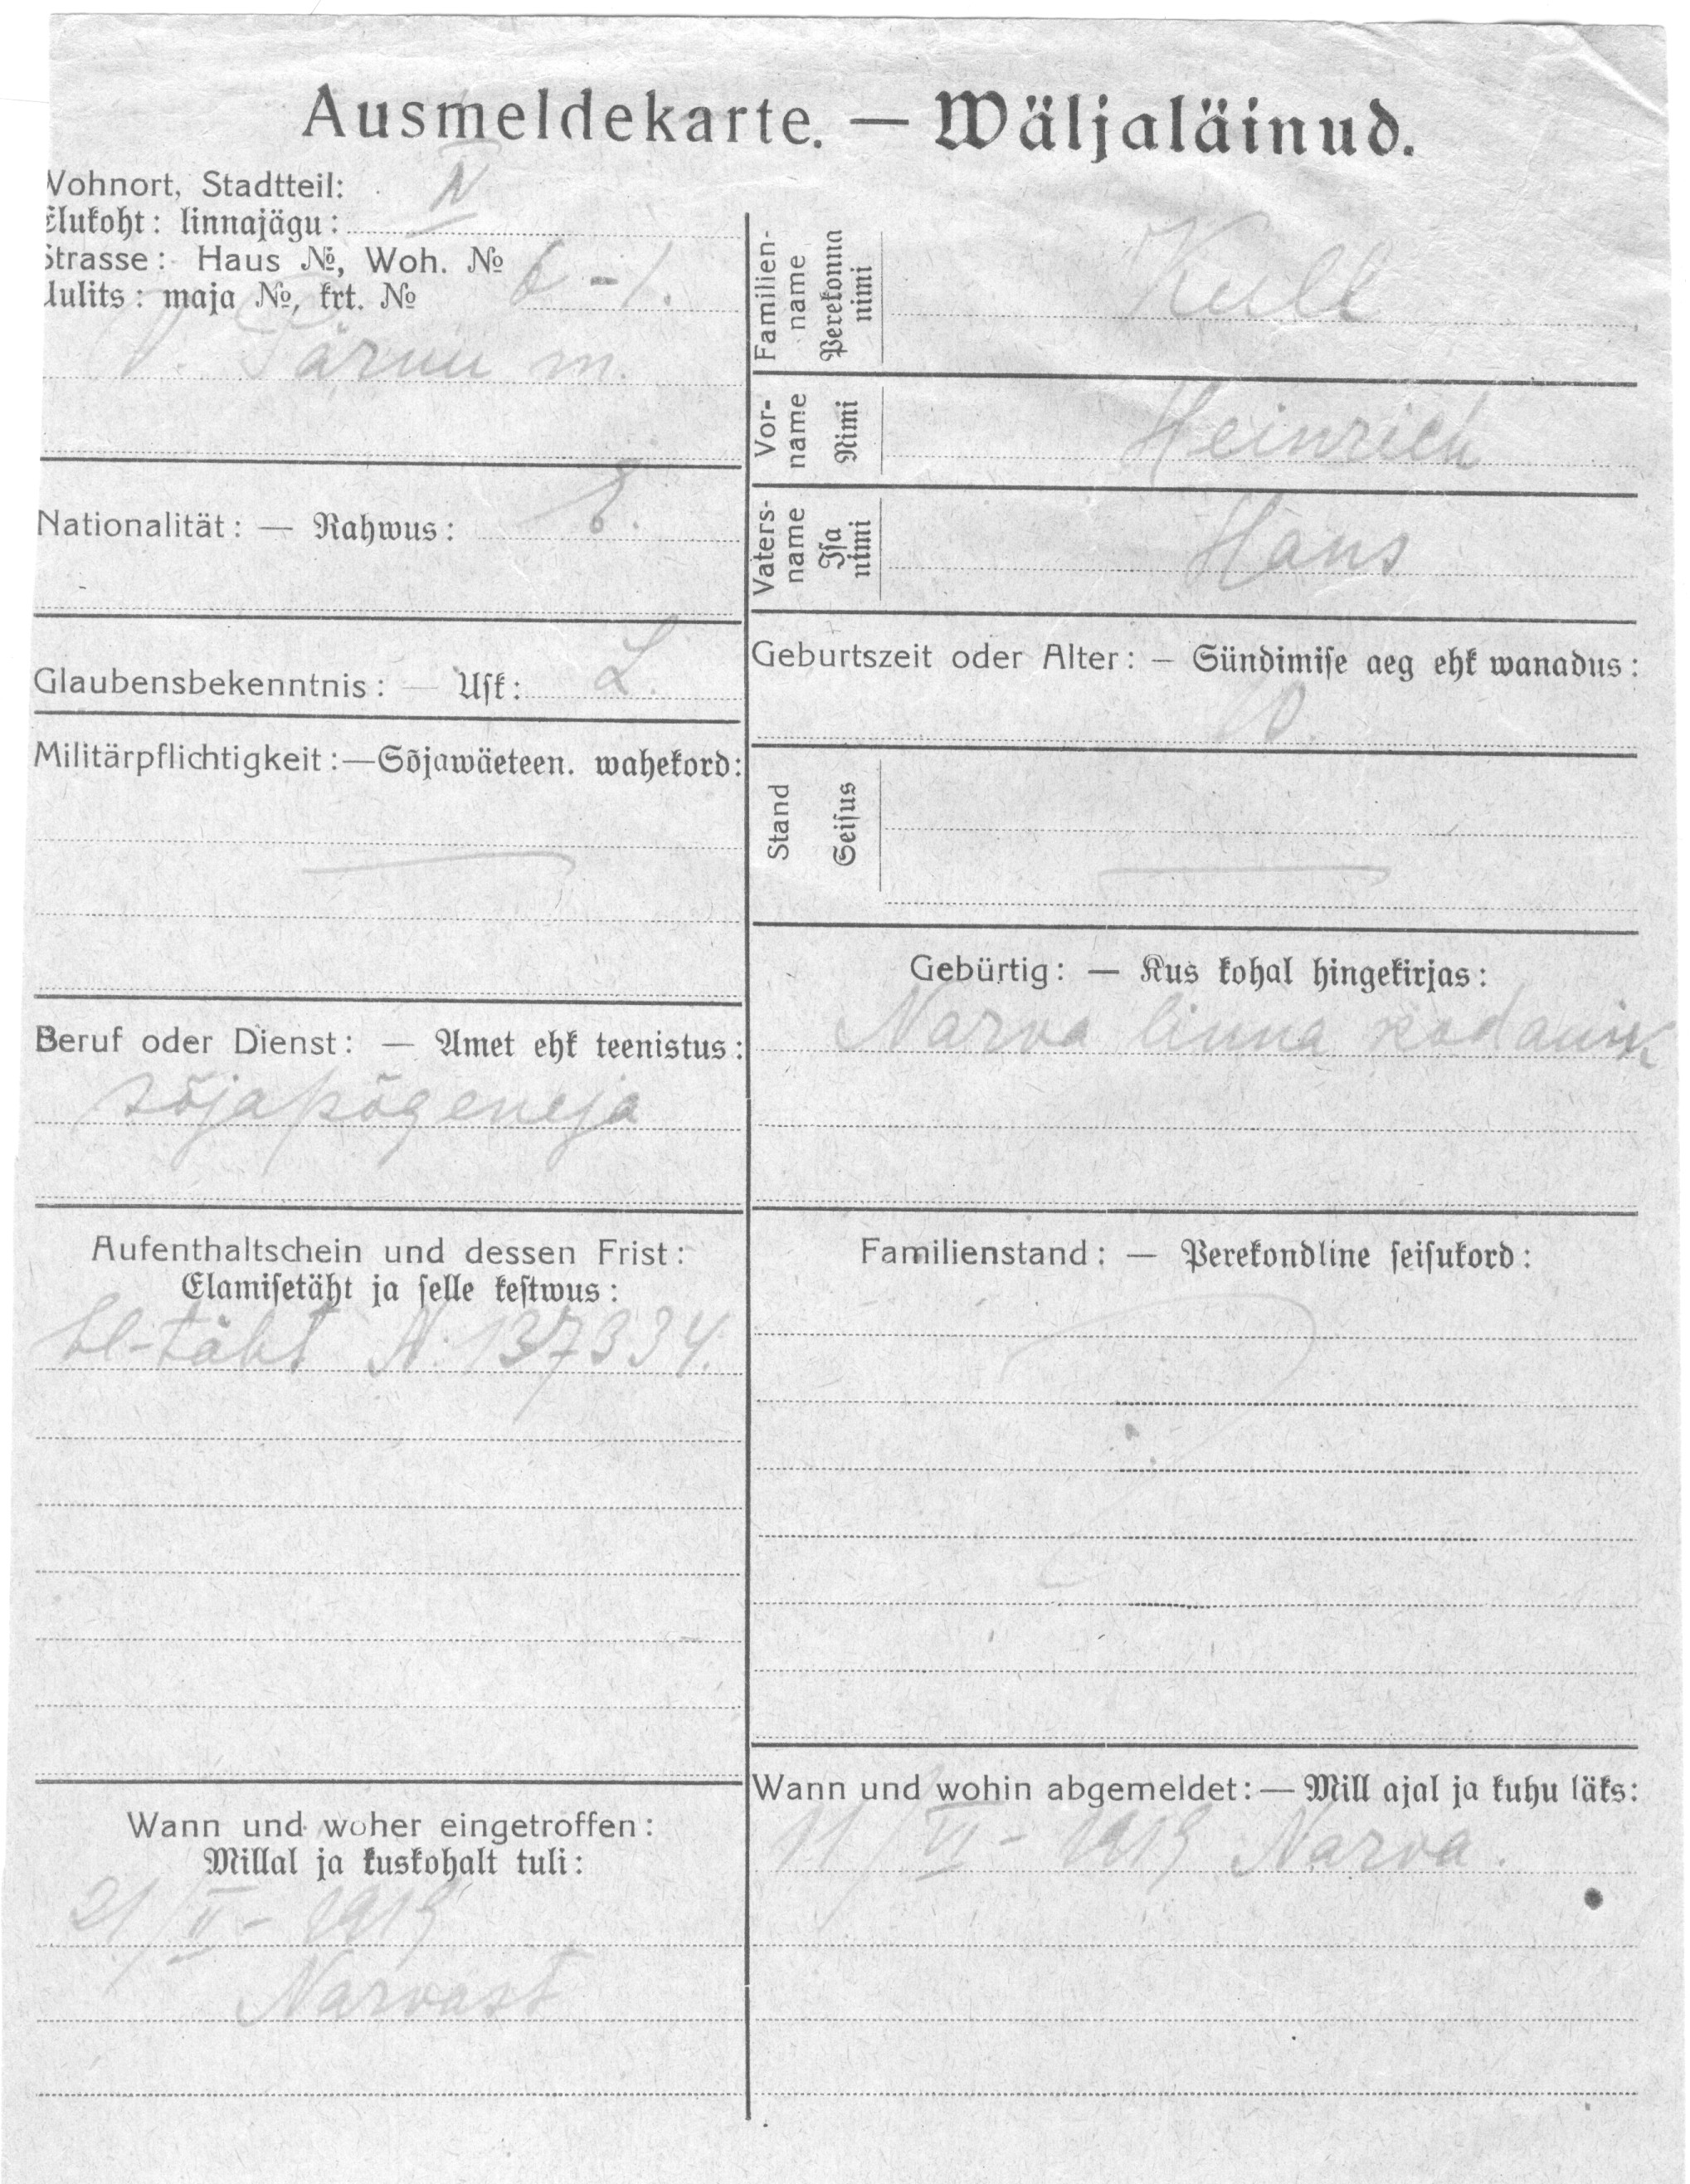 Ausmeldekarte. — Wäljaläinud.
Wohnort, Stadtteil:
Elukoht: linnajägu: IV
Strasse: Haus №, Woh. №
Uulits: maja №, krt. № 6-1.
V. Pärnu m.
Nationalität: — Rahwus: E.
Glaubensbekenntnis: — Usk: L.
Militärpflichtigkeit:—Sõjawäeteen. wahekord:
Beruf oder Dienst: — Amet ehk teenistus:
sõjapõgeneja
Aufenthaltschein und dessen Frist:
Elamisetäht ja selle kestwus:
El-täht N. 137334.
Wann und woher eingetroffen:
Millal ja kuskohalt tuli:
21/II- 1919
Narvast
Familien-
name
Perekonna
nimi
Kull
Vor-
name
Nimi
Heinrich
Vaters-
name
Isa
nimi
Hans
Geburtszeit oder Alter: — Sündimise aeg ehk wanadus:
10.
Stand
Seisus
Gebürtig: — Kus kohal hingekirjas:
Narva linna kodanik
Familienstand: — Perekondline seisukord:
Wann und wohin abgemeldet:— Mill ajal ja kuhu läks:
11/VI- 1919 Narva.